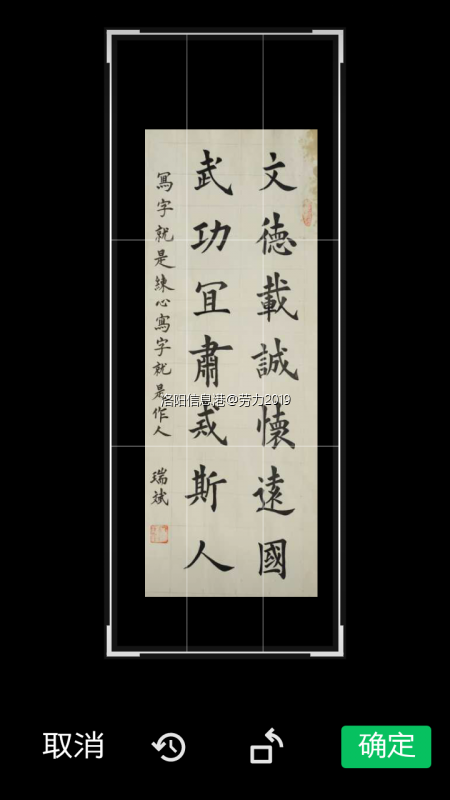 文德載誠懷遠國
武功冝肅戒斯人
寫字就是練心寫字就是作人
瑞斌
洛阳信息港@劳力2019
取消
确定